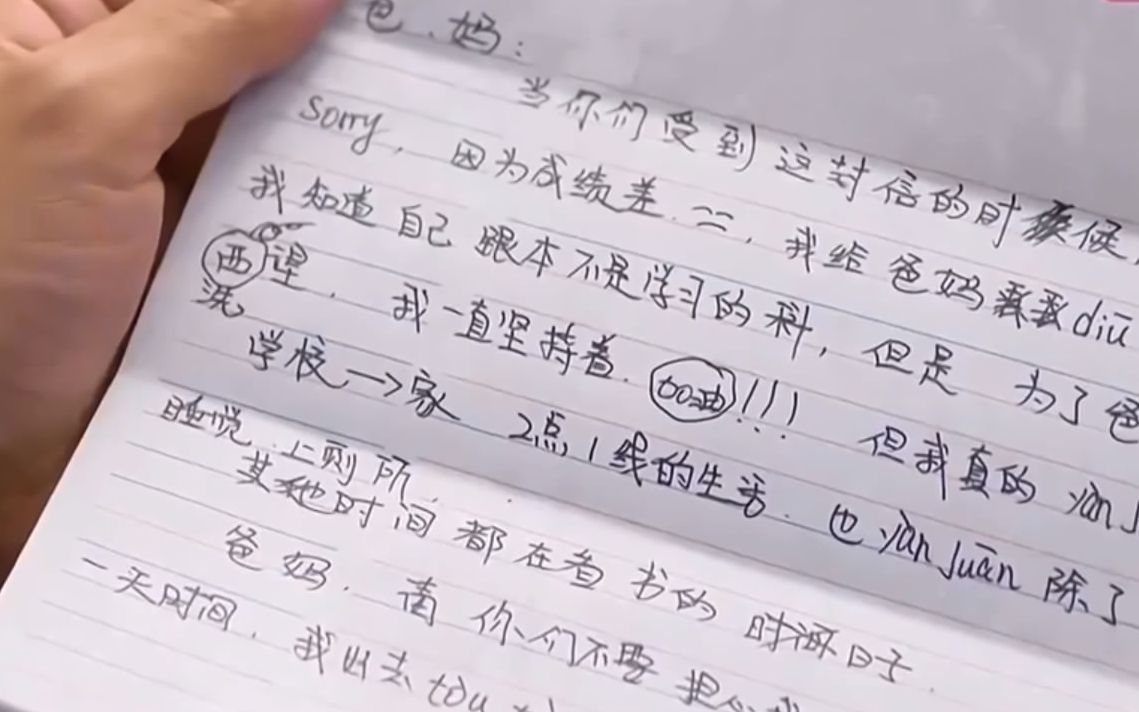 爸、妈：
当你们受到这封信的时候，
sorry，因为成绩差.二，我给爸妈diū
我知道自己跟本不是学习的料，但是 为了爸
洗 我一直坚持着.加油!!! 但我真的 yàn j
学校→家 2点1线的生活.也yàn juān 除了
睡悦.上厕所，
其她时间都在看书的 日子.
爸妈，请你们不要担心我
一天时间，我出去tòu